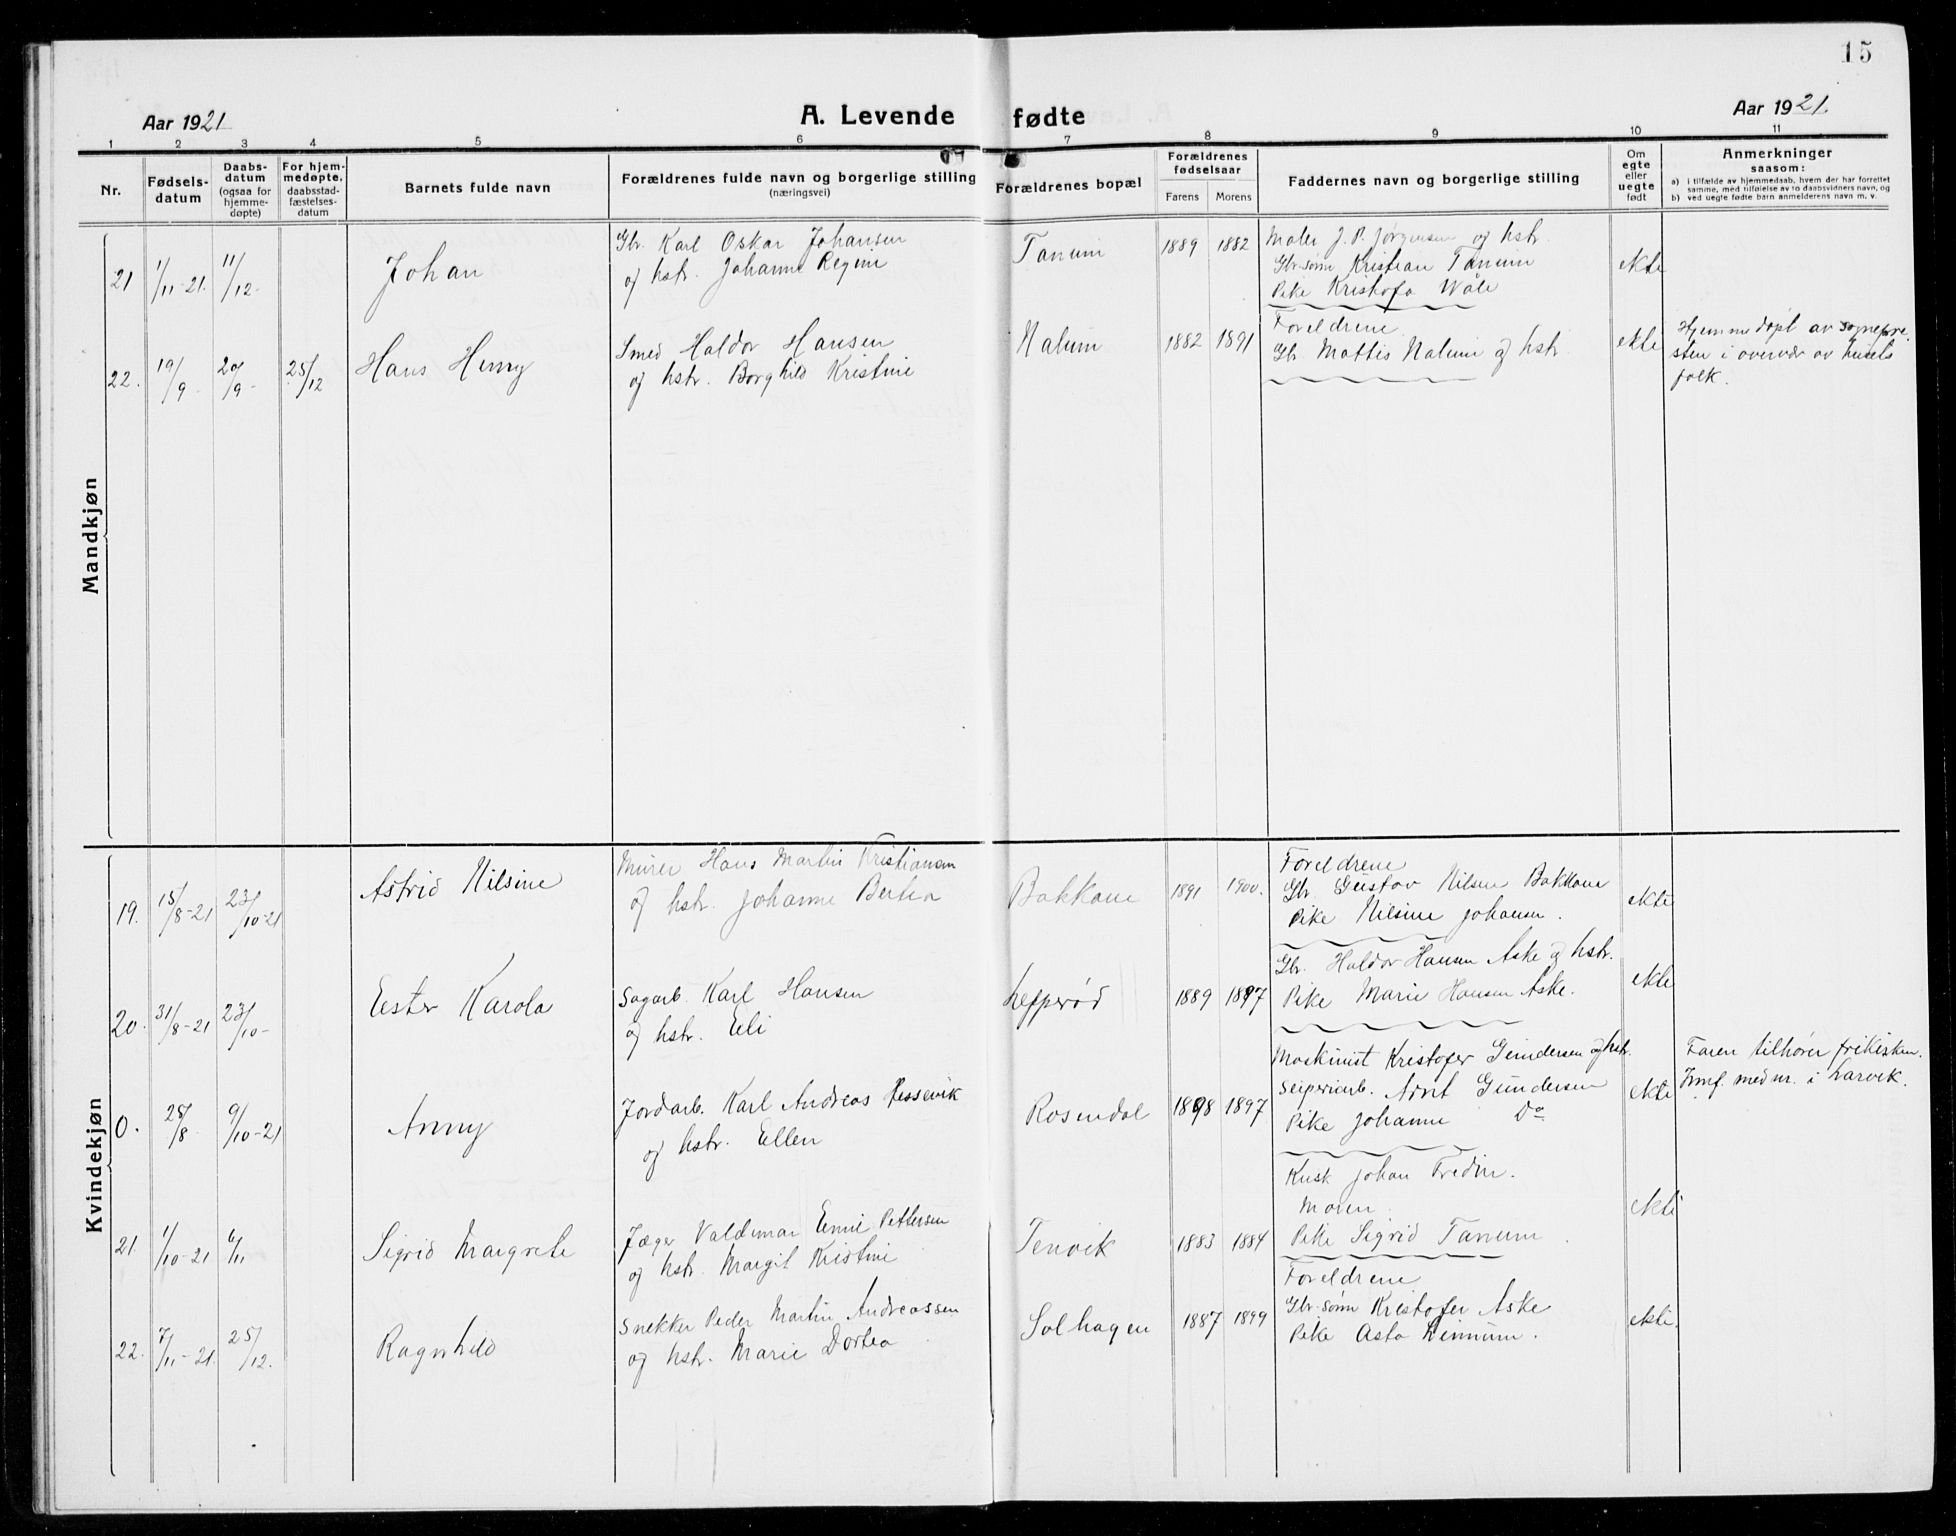 15
Aar 1921
A. Levende fødte
Aar 1921.
1 2 3 4 5 6 7 8 9 10 11
Nr.
Fødsels-
datum
Daabs-
datum
(ogsaa for
hjemme-
døpte)
For hjem-
medøpte,
daabsstad-
fæstelses-
datum
Barnets fulde navn
Forældrenes fulde navn og borgerlige stilling
(næringsvei)
Forældrenes bopæl
Forældrenes
fødselsaar
Farens Morens
Faddernes navn og borgerlige stilling
Om
egte
eller
uegte
født
Anmerkninger
saasom:
a) i tilfælde av hjemmedaab, hvem der har forrettet
samme, med tilføielse av to daabsvidners navn, og
b) ved uegte fødte barn anmelderens navn m. v.
Mandkjøn
21 1/11-21. 11/12- Johan
Gbr. Karl Oskar Johansen
og hstr. Johanne Regine
Tanum 1889 1882
Maler J. P. Jørgensen og hstr.
Gbr.sønn Kristian Tanum
Pike Kristofa Wåle
ekte
22. 19/9- 20/9- 25/12 Hans Henry
Smed Haldor Hansen
og hstr. Borghild Kristine
Nalum 1882 1891
Foreldrene
Gb. Mattis Nalum og hstr.
ekte
Hjemmedøpt av sognepre-
sten i overvær av husets
folk.
Kvindekjøn
19. 15/8-21 23/10-21 Astrid Nilsine
Murer Hans Martin Kristiansen
og hstr. Johanne Bertea
Bakkane 1891 1900.
Foreldrene
Gb. Gustav Nilsen Bakkane
Pike Nilsine Johansen.
ekte
20. 31/8-21 23/10- Ester Karola
Sagarb. Karl Hansen
og hstr. Eli
Lefferød 1889 1897
Gbr. Haldor Hansen Aske og hstr.
Pike Marie Hansen Aske.
ekte
0. 25/8- 9/10-21 Anny
Jordarb. Karl Andreas Ressevik
og hstr. Ellen
Rosendal 1898 1897
Maskinist Kristofer Gundersen og hstr.
Meieriarb. Arnt Gundersen
Pike Johanne Do
ekte
Faren tilhører frikirken.
Innf. med nr. i Larvik.
21 1/10-21 6/11 Sigrid Margrete
Jæger Valdemar Emil Pettersen
og hstr. Margit Kristine
Tenvik 1883 1884
Kusk Johan Fredin.
Moren.
Pike Sigrid Tanum.
ekte
22. 7/11-21. 25/12. Ragnhild
Snekker Peder Martin Andreassen
og hstr. Marie Dortea
Solhagen 1887 1899
Foreldrene
Gbr.sønn Kristofer Aske
Pike Asta Linnum.
ekte.